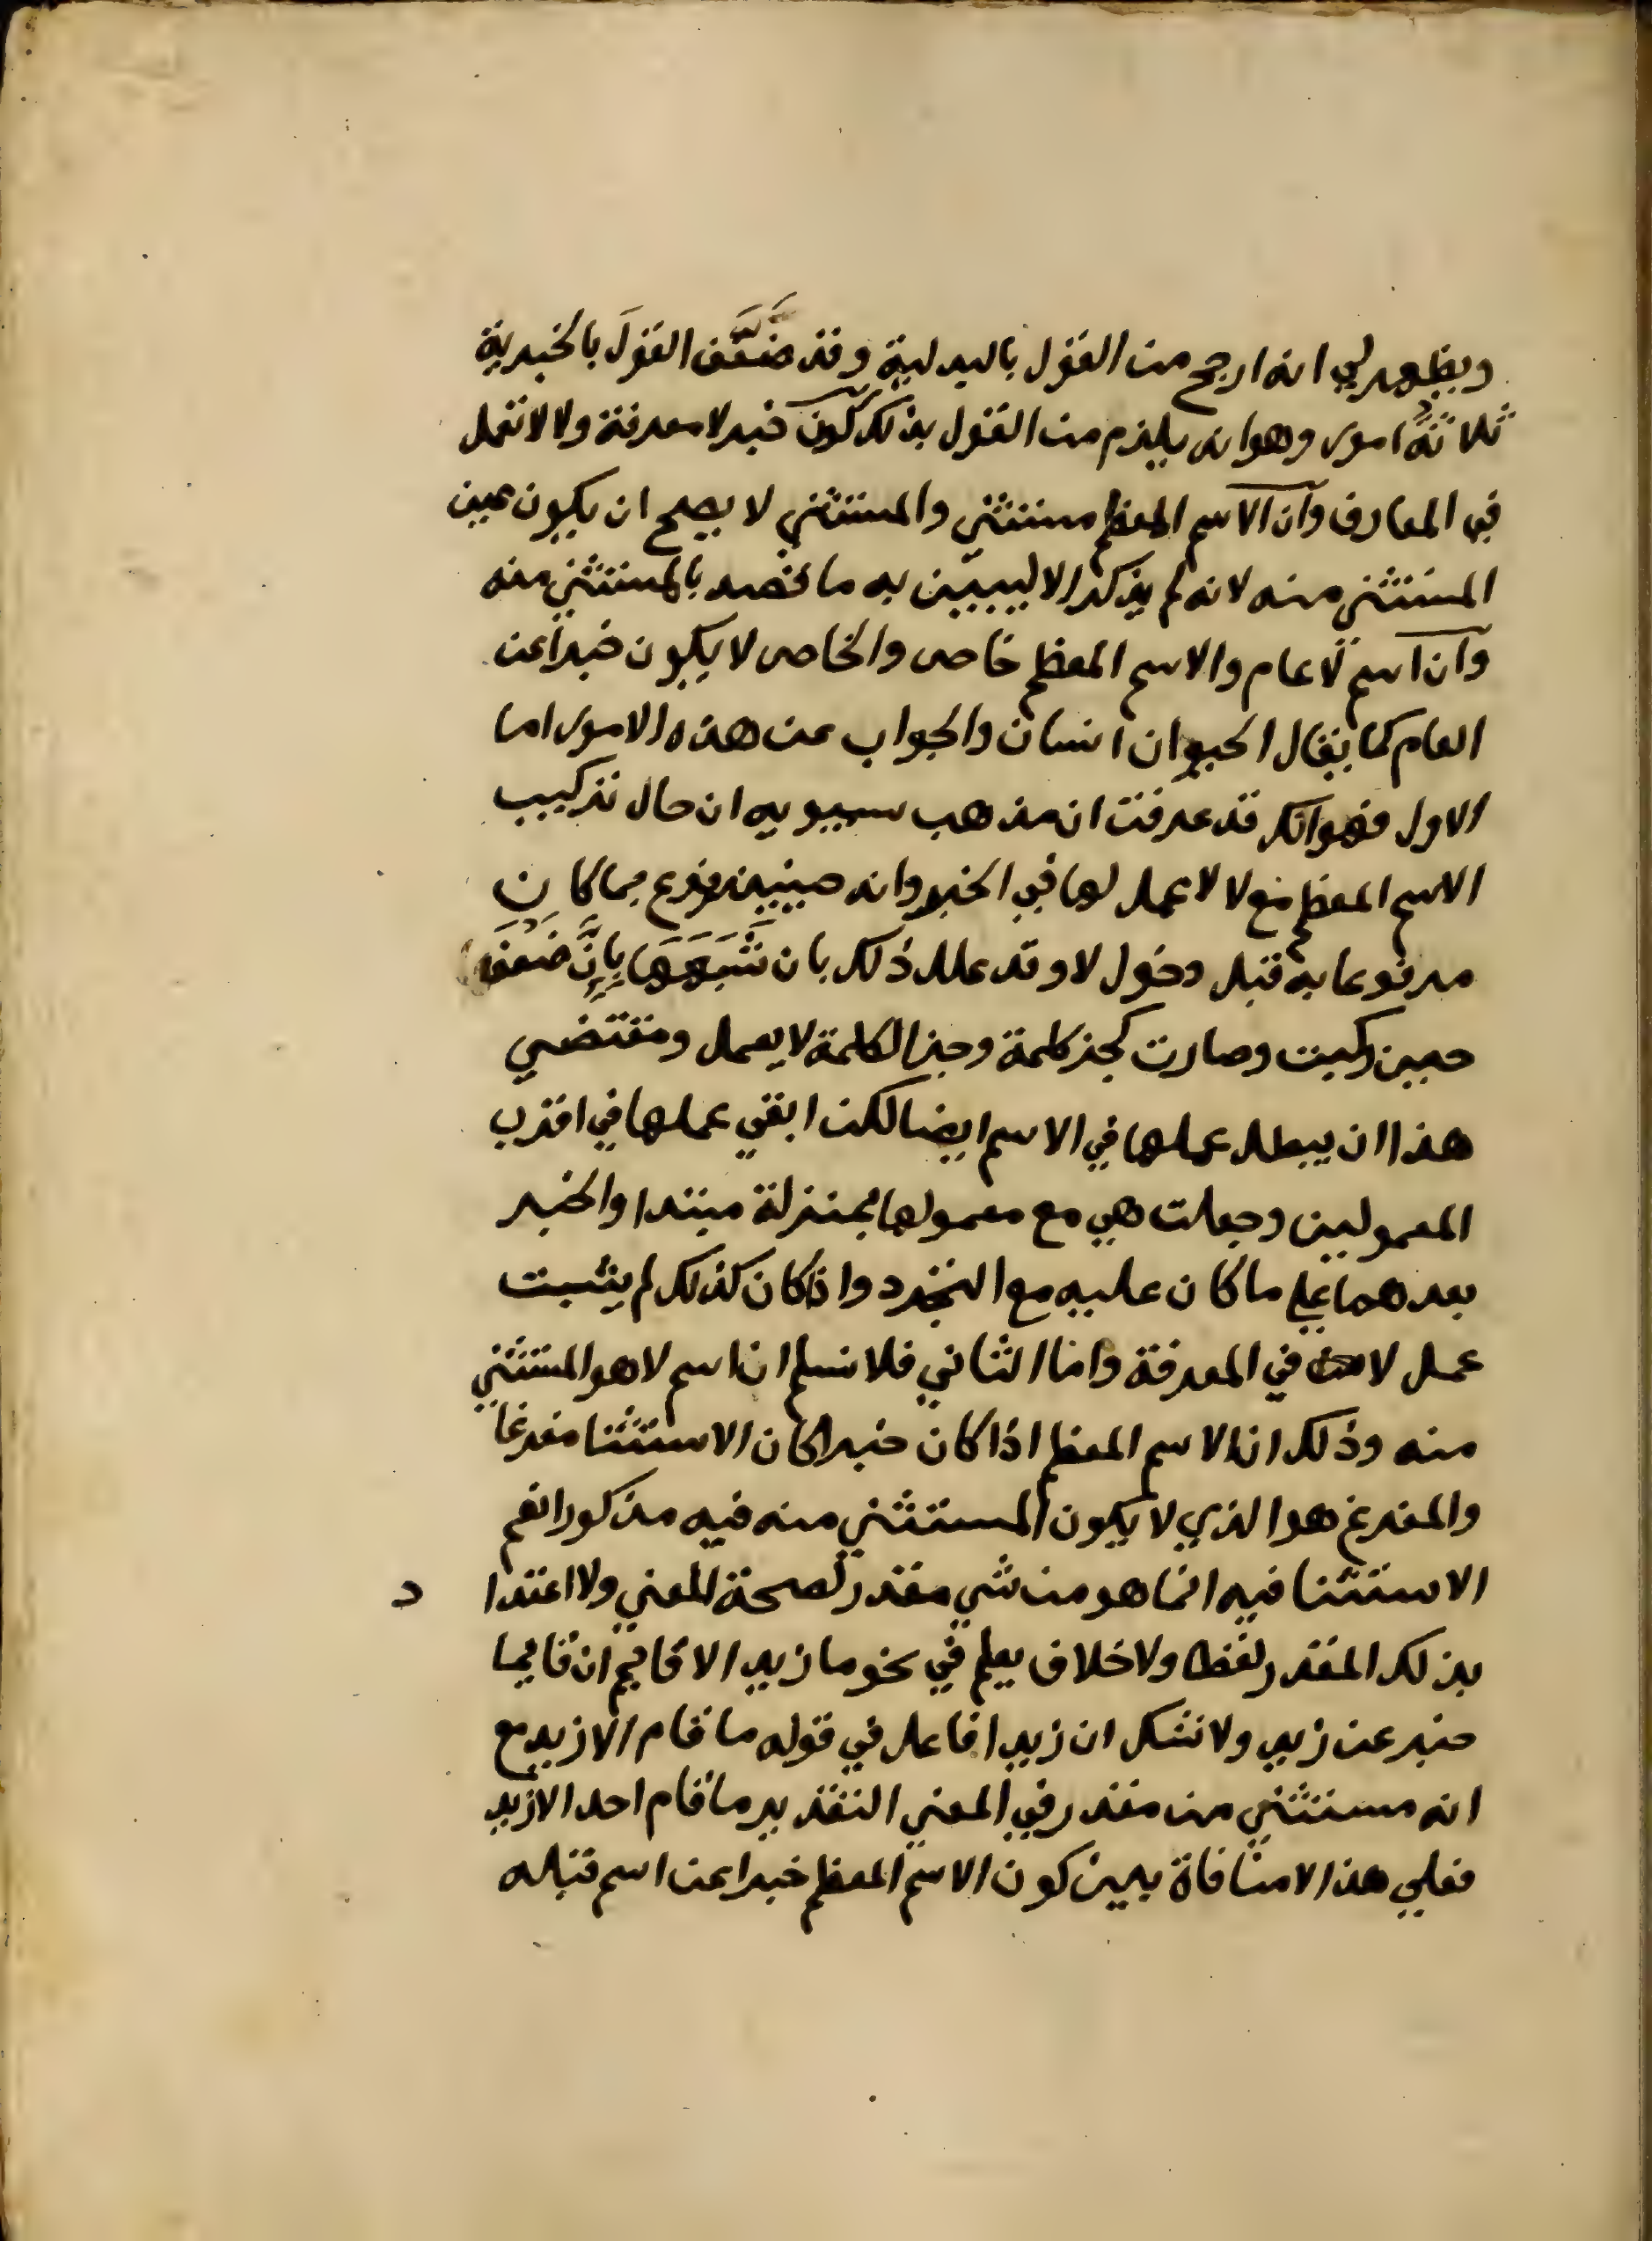 ويظهر لي انه ارجح من القول بالبدلية وقد ضَعَّفَ القولَ بالخبرية
ثلاثةُ امور وهو انه يلزم من القول بذلك كون خبر لا معرفة ولا لا تعمل
في المعارف وان الاسم المعظم مستثني والمستثني لا يصح ان يكون عين
المستثني منه لانه لم يذكر الا ليبيّن به ما قصد بالمستثني منه
وان اسم لا عام والاسم المعظم خاص والخاص لا يكون خبرا عن
العام كما يقال الحيوان انسان والجواب عن هذه الامور اما
الاول فهو انك قد عرفت ان مذهب سيبويه ان حال تركيب
الاسم المعظم مع لا لا عمل لها في الخبر وانه حينيذ مرفوع بما كان
مرفوعا به قبل دخول لا وقد علل ذلك بان شَبَهَهَا بِاِنَّ ضَعُفَ
حين ركبت وصارت كجز كلمة وجز الكلمة لا يعمل ومقتضي
هذا ان يبطل عملها في الاسم ايضا لكن ابقي عملها في اقرب
المعمولين وجعلت هي مع معمولها بمنزلة مبتدا والخبر
بعدهما علي ما كان عليه مع التجرد واذا كان كذلك لم يثبت
عمل لا في المعرفة واما الثاني فلا نسلم ان اسم لا هو المستثني
منه وذلك ان الاسم المعظم اذا كان خبرا كان الاستثنا مفرغا
والمفرغ هو الذي لا يكون المستثني منه فيه مذكورا نعم
الاستثنا فيه انما هو من شي مقدر لصحة المعني ولا اعتدا د
بذلك المقدر لفظا ولا خلاف يعلم في نحو ما زيد الا قايم ان قايما
خبر عن زيد ولا نشك ان زيدا فاعل في قوله ما قام الا زيد مع
انه مستثني من مقدر في المعني التقدير ما قام احد الا زيد
فعلي هذا لا منافاة بين كون الاسم المعظم خبرا عن اسم قبله